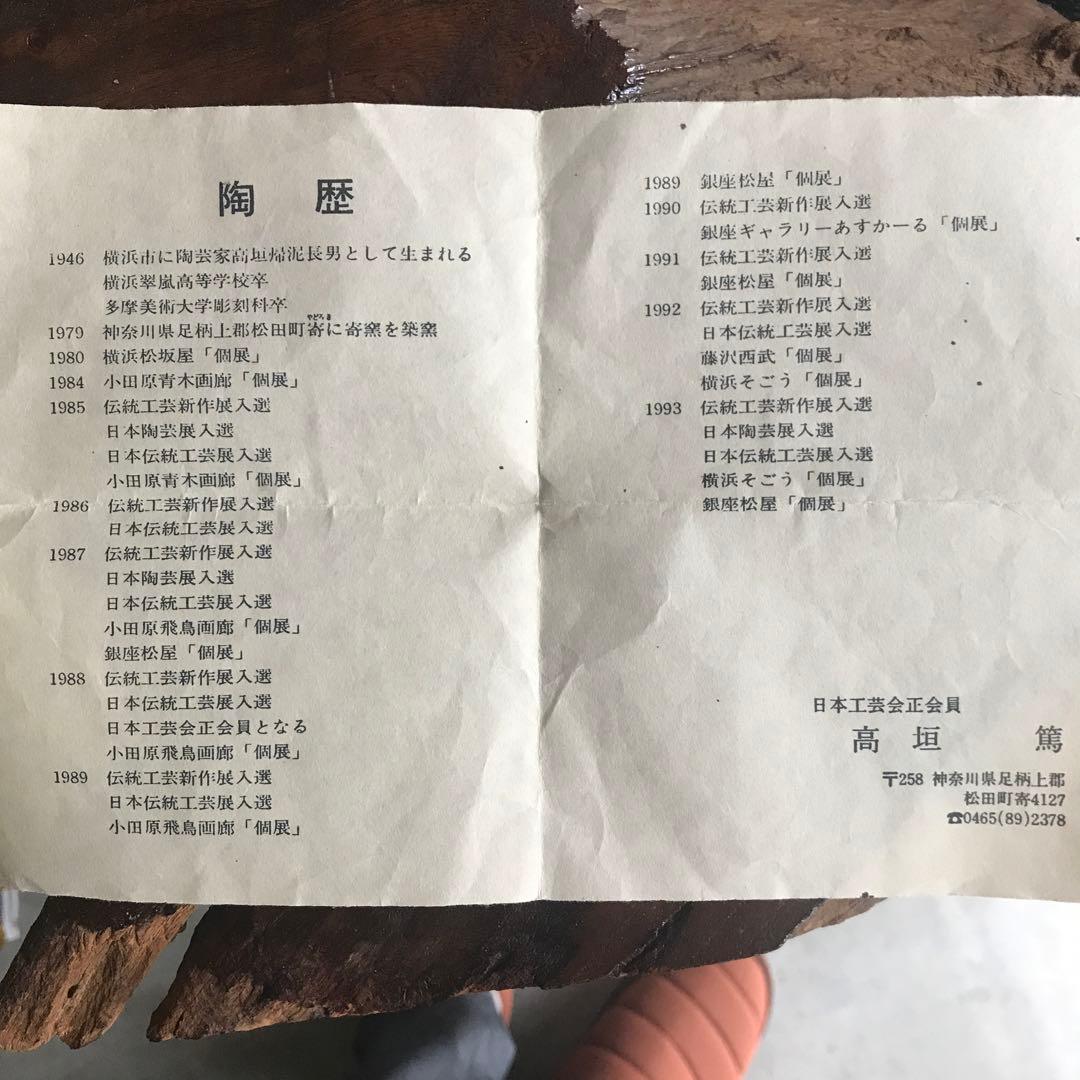 陶歴
1946 横浜市に陶芸家高垣帰泥長男として生まれる
横浜翠嵐高等学校卒
多摩美術大学彫刻科卒
やどろき
1979 神奈川県足柄上郡松田町寄に寄窯を築窯
1980 横浜松坂屋「個展」
1984 小田原青木画廊「個展」
1985 伝統工芸新作展入選
日本陶芸展入選
日本伝統工芸展入選
小田原青木画廊「個展」
1986 伝統工芸新作展入選
日本伝統工芸展入選
1987 伝統工芸新作展入選
日本陶芸展入選
日本伝統工芸展入選
小田原飛鳥画廊「個展」
銀座松屋「個展」
1988 伝統工芸新作展入選
日本伝統工芸展入選
日本工芸会正会員となる
小田原飛鳥画廊「個展」
1989 伝統工芸新作展入選
日本伝統工芸展入選
小田原飛鳥画廊「個展」
1989 銀座松屋「個展」
1990 伝統工芸新作展入選
銀座ギャラリーあすかーる「個展」
1991 伝統工芸新作展入選
銀座松屋「個展」
1992 伝統工芸新作展入選
日本伝統工芸展入選
藤沢西武「個展」
横浜そごう「個展」
1993 伝統工芸新作展入選
日本陶芸展入選
日本伝統工芸展入選
横浜そごう「個展」
銀座松屋「個展」
日本工芸会正会員
高垣 篤
〒258 神奈川県足柄上郡
松田町寄4127
☎0465(89)2378